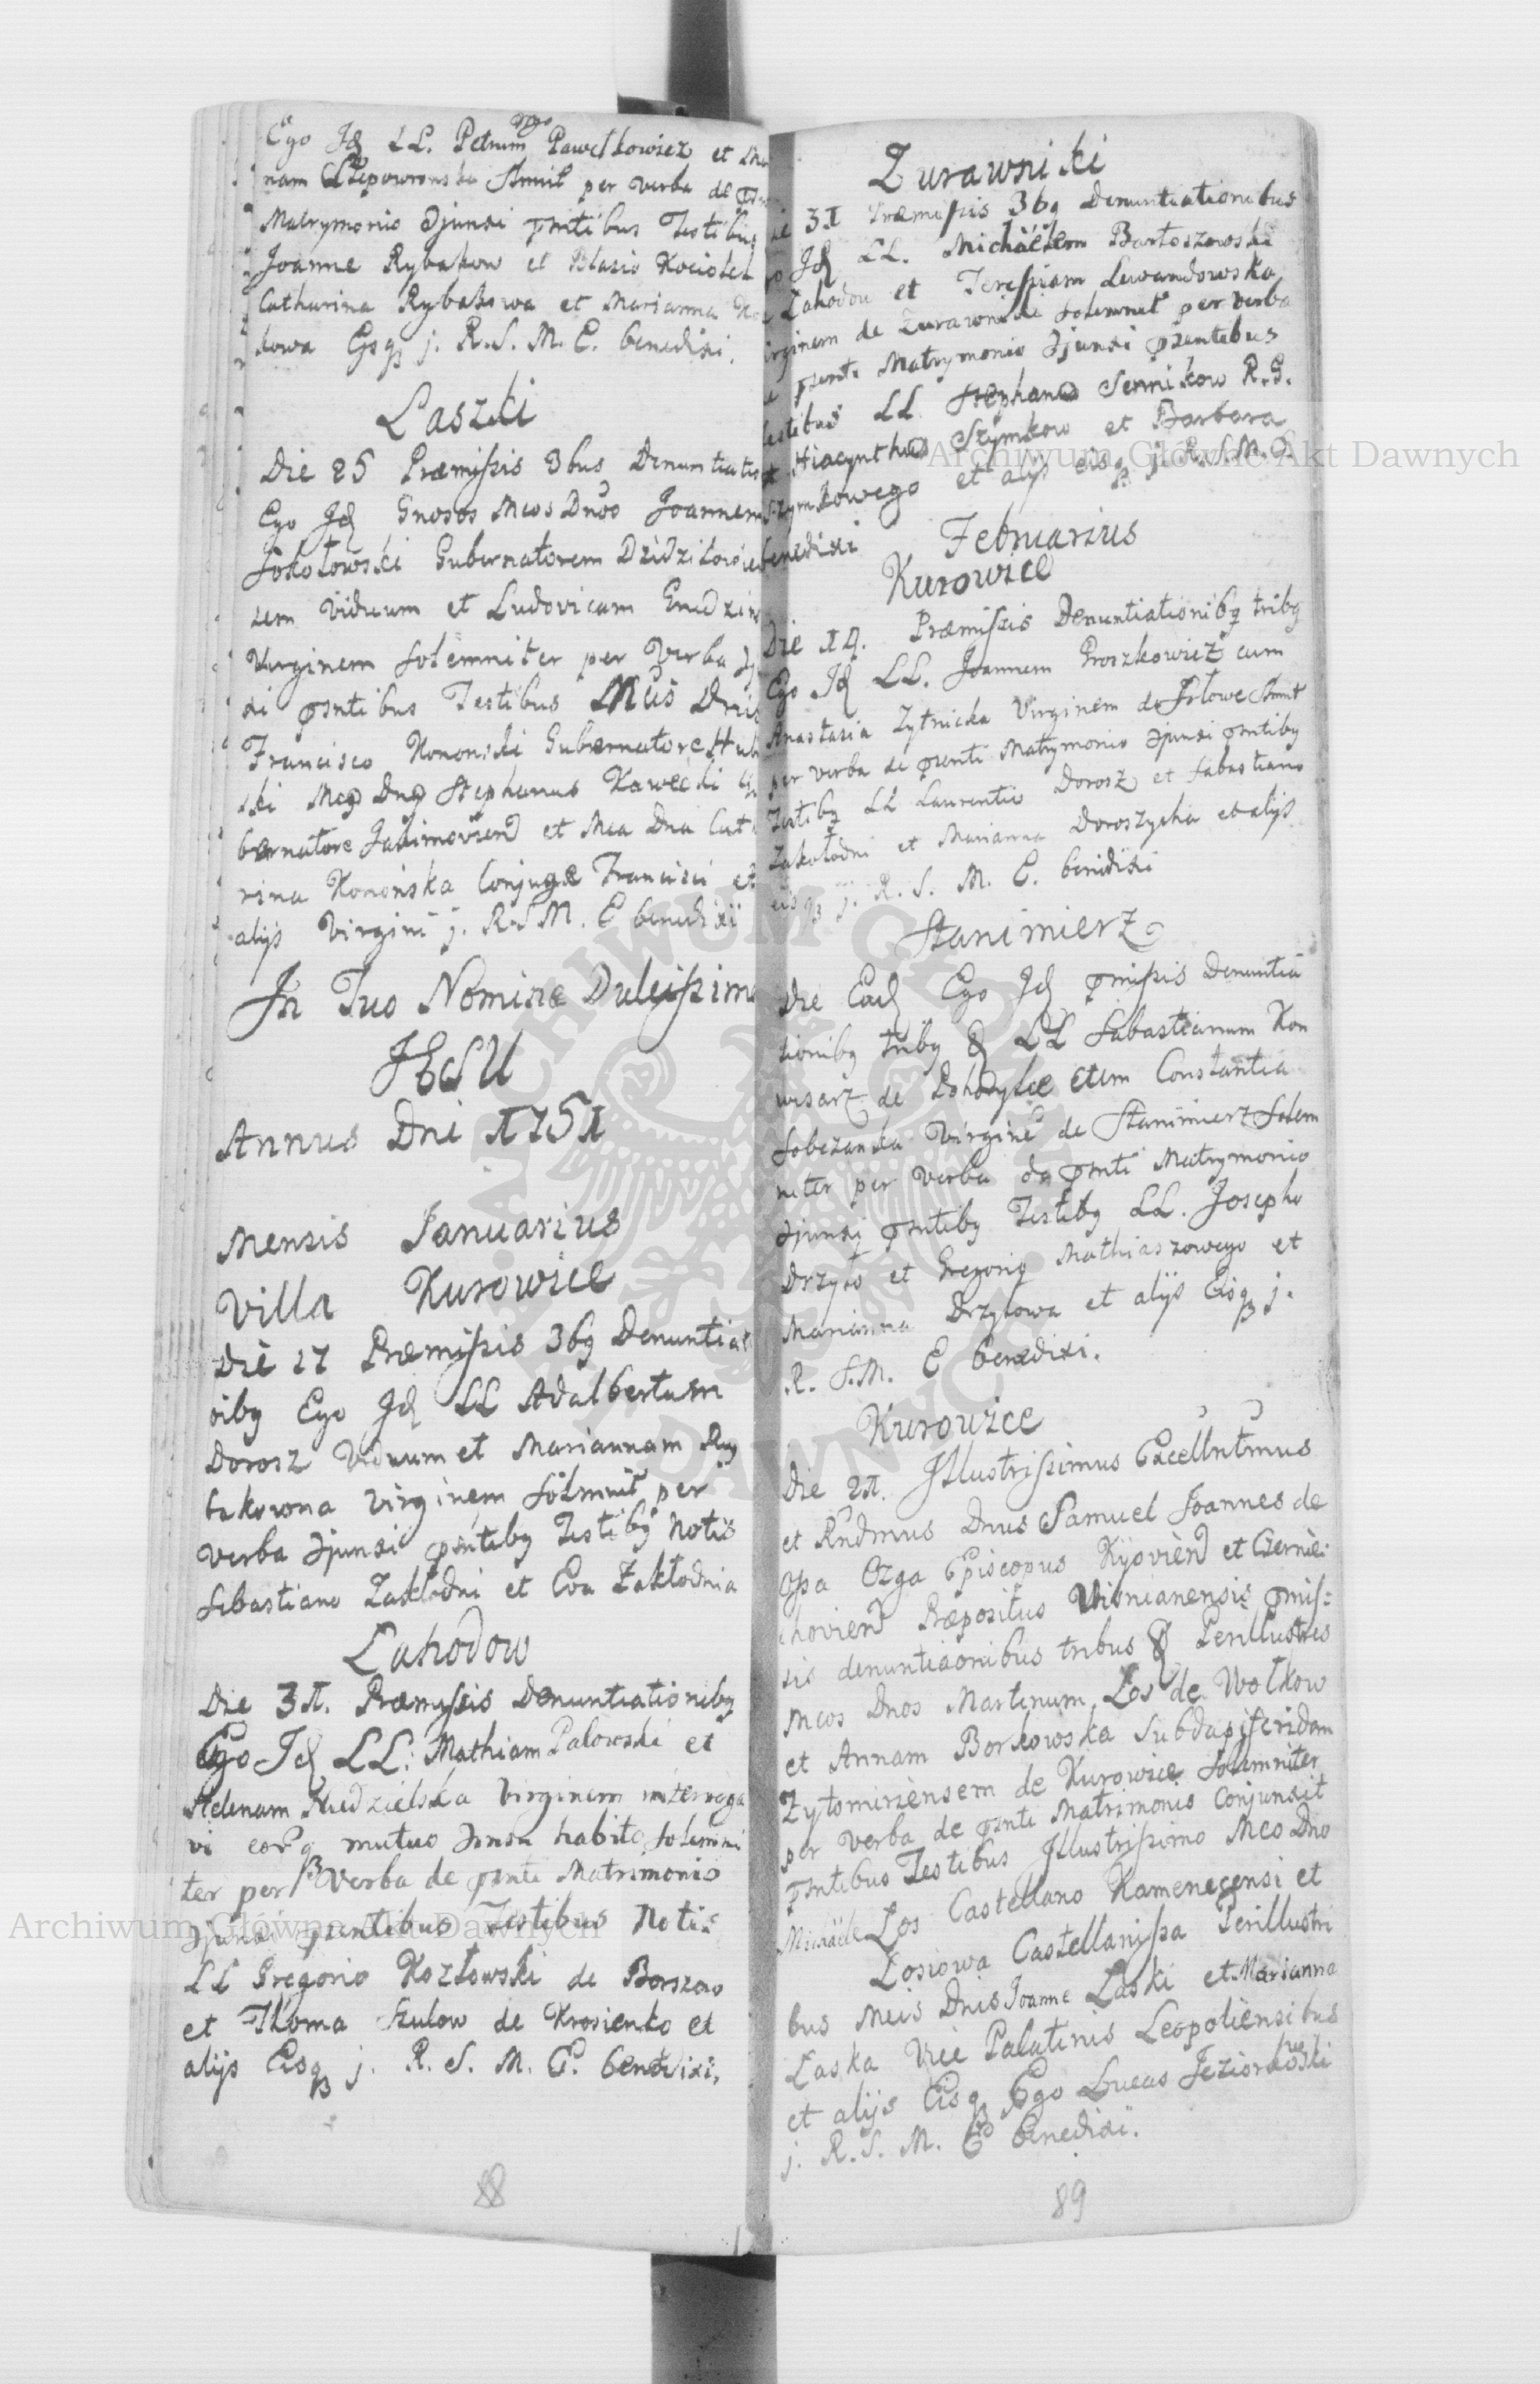 Ego Id LL. Petrum Pawelkowicz et Ma
nam Slepowronska Slmnit per verba de psn
Matrymonio Zjunxi psntibus Testibus
Joanne Rybakow et Blasio Kociolek
Catharina Rybakowa et Marianna Ko
kowa Eisq j. R. S. M. E. benedixi.
Laszki
Die 25 Præmissis 3bus Denuntiatio
Ego Id Gnosos Meos Dnos Joannem
Sokołowski Gubernatorem Dzidziłovien
sem Viduum et Ludovicam
Virginem Solemniter per Verba
xi psntibus Testibus
Francisco Kononski Gubernatore
ski Mcg Dng Stephanus Kawecki
bernatore Janimovien et Mea Dna Cat
rina Konońska Conjuge Francisci et
alijs Virgini j. R. S M. E benedixi
In Tuo Nomine Dulcissime
JESU
Annus Dni 1751
Mensis Januarius
Villa Kurowice
Die 17 Præmissis 3bg Denuntiat
oibg Ego Id LL Adalbertum
Dorosz Viduum et Mariannam Ry
bakowna Virginem Solmnit per
verba Zjunxi psntibg Testibg Notis
Sebastiano Zakłodni et Eva Zakłodnia
Lahodow
Die 31. Præmissis Denuntiationibg
Ego Id LL: Mathiam Palowski et
Helenam Niedzielska Virginem interroga
vi eorq mutuo Znsu habito Solemni
ter per Verba de psnti Matrimonio
Zjunxi psentibus Testibus Notis
LL Gregorio Kozłowski de Borszow
et Thoma Szulow de Krosienko et
alijs Eisq j. R. S. M. E. benedixi.
88
Zurawniki
31 Præmissis 3bg Denuntiationibus
Id LL. Michäelem Bartoszowski
Lahodou et Teressiam Lewandowska
irginem de Zurawniki Solemnit per verba
psenti Matrymonio Zjunxi psentibus
estibus LL. Stephano Sennikow R. G.
et Hiacyntho Szymkow et Barbara
Szymkowego et alijs eisq j. R. S. M. E.
benedixi
Februarius
Kurowice
Die 14. Præmissis Denuntiationibg tribg
Ego Id LL. Joannem Groszkowicz cum
Anastasia Zytnicka Virginem de Slmnit
per verba de psenti Matrymonio Zjunxi psntibg
Testibg LL Laurentio Dorosz et Sabastiano
Zakołodni et Marianna Doroszycha et alijs
eisq j. R. S. M. E. benedixi
Stanimierz
Die Ead Ego Id pmissis Denuntia
tionibg tribg LL Sabastianum Kon
wisarz de Dohodylie cum Constantia
Sobczanka Virgine de Stanimierz Solem
niter per Verba de psnti Matrymonio
Zjunxi psntibg Testibg LL. Josepho
Drzyło et Gregorio Mathiaszowego et
Marianna Drzyłowa et alijs Eisq j.
R. S. M. E benedixi.
Kurowice
Die 21. Jllustrissimus Excellntmus
et Rndmus Dnus Samuel Joannes de
Ossa Ozga Episcopus Kijovien et Czernie:
chovien Præpositus Visnianensis pmis:
sis denuntiaonibus tribus Perillustres
Meos Dnos Martinum Łos de Wolkow
et Annam Borkowska Subdapiferidam
Zytomiriensem de Kurowice Solemniter
per verba de psnti Matrimonio Conjunxit
psntibus Testibus Jllustrissimo Meo Dno
Michäele Łos Castellano Kamenecensi et
Łosiowa Castellanissa Perillustri
bus Meis Dnis Joanne Łaski et Marianna
Łaska Vice Palatinis Leopoliensibus
et alijs Eisq Ego Lucas Jeziorkowski
j. R. S. M. E benedixi.
89
Archiwum Główne Akt Dawnych
Archiwum Główne Akt Dawnych
ARCHIWUM GŁÓWNE AKT DAWNYCH